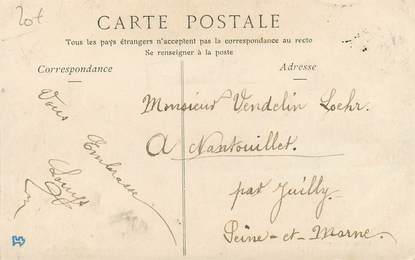 20f
CARTE POSTALE
Tous les pays étrangers n'acceptent pas la correspondance au recto
Se renseigner à la poste
Correspondance
Adresse
Vous
Embrasse
Louys
Monsieur Vendelin Loehr.
A Nantouillet.
par Juilly.
Seine-et-Marne.